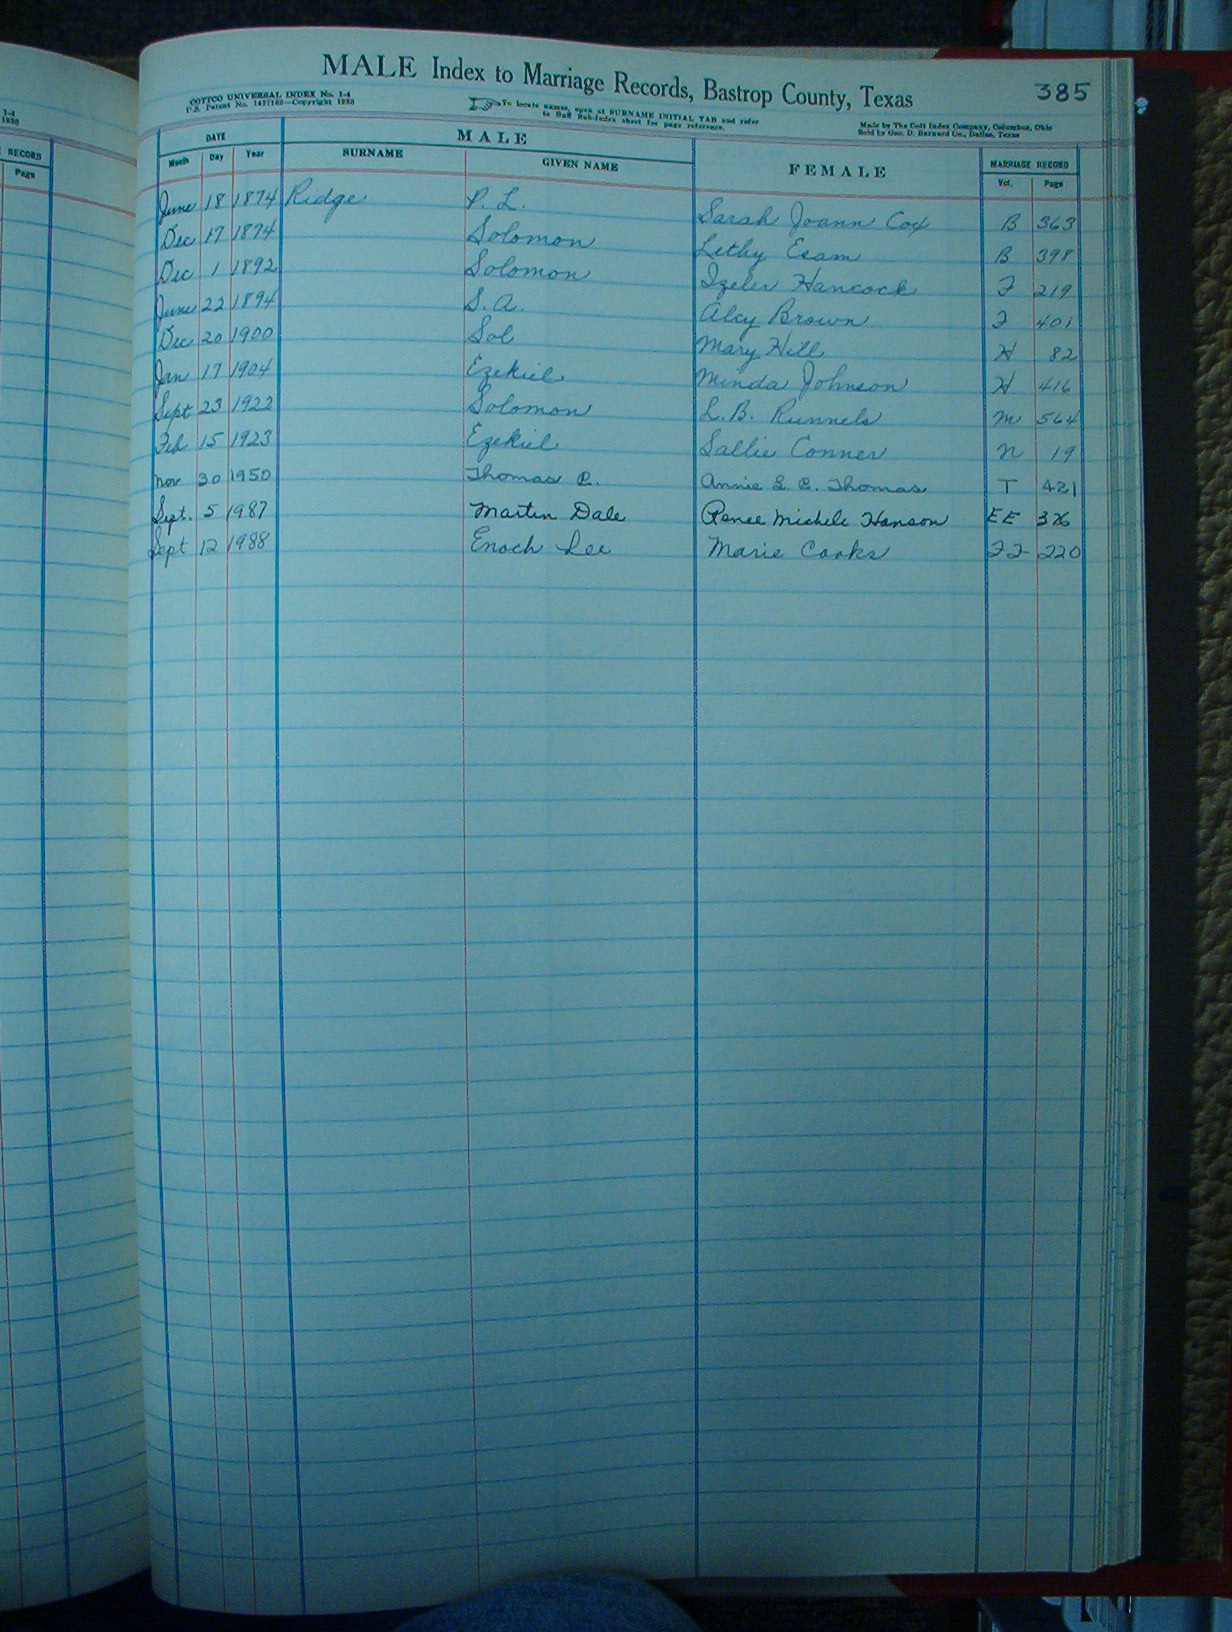 MALE Index to Marriage Records, Bastrop County, Texas 385
COTTCO UNIVERSAL INDEX No. 1-4
U.S. Patent No. 1437169—Copyright 1930
To locate names, open at SURNAME INITIAL TAB and refer
to Buff Sub-Index sheet for page reference.
Made by The Cott Index Company, Columbus, Ohio
Sold by Geo. D. Barnard Co., Dallas, Texas
1-4
1930
RECORD
Page
DATE MALE FEMALE MARRIAGE RECORD
Month Day Year SURNAME GIVEN NAME Vol. Page
June 18 1874 Ridge P. L. Sarah Joann Cox B 363
Dec 17 1874 Solomon Lethy Esam B 398
Dec 1 1892 Solomon Izeler Hancock F 219
June 22 1894 S. A. Alcy Brown F 401
Dec 20 1900 Sol Mary Hill H 82
Jan 17 1904 Ezekiel Minda Johnson H 416
Sept 23 1922 Solomon L. B. Runnels M 564
Feb 15 1923 Ezekiel Sallie Conner N 19
Nov 30 1950 Thomas C. Annie L. C. Thomas T 421
Sept. 5 1987 Martin Dale Renee Michele Hanson EE 326
Sept 12 1988 Enoch Lee Marie Cooks FF 220